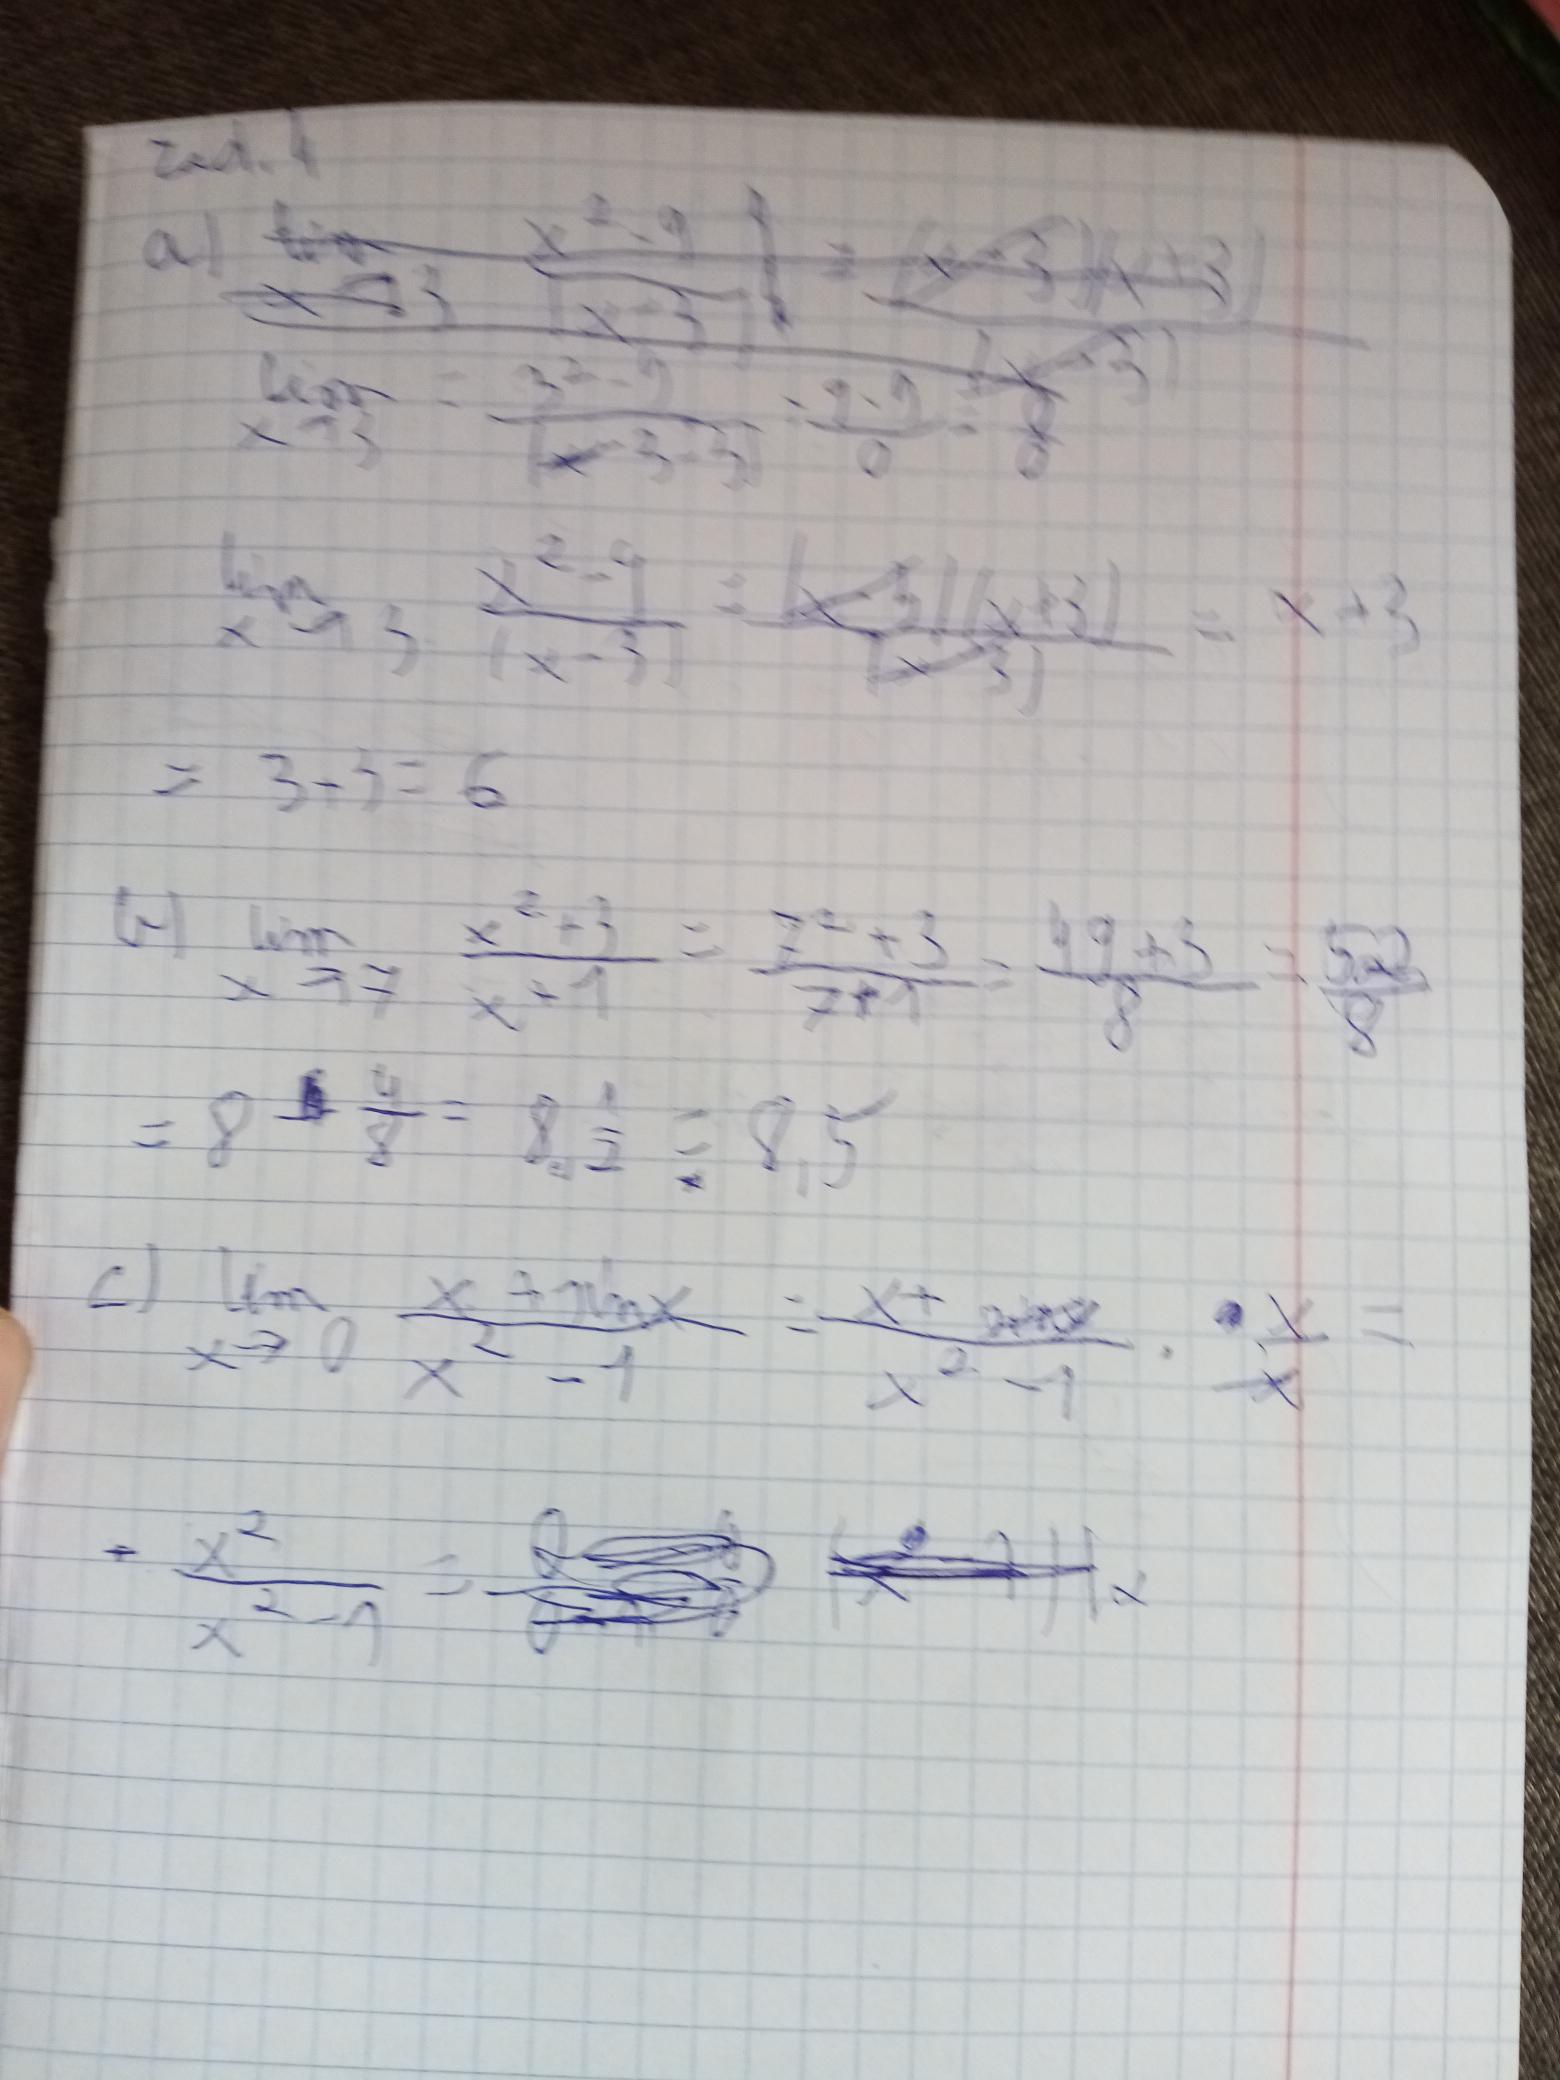 zad. 4
a) lim x→3 x²-9 / (x-3) = (x-3)(x+3) / (x-3)
lim x→3 = 3²-9 / (x-3-3) = 9-9 / 0 = 0/0
lim x→3 x²-9 / (x-3) = (x-3)(x+3) / (x-3) = x+3
= 3+3 = 6
b) lim x→7 x²+3 / x+1 = 7²+3 / 7+1 = 49+3 / 8 = 52/8
= 8 4/8 = 8 1/2 = 8,5
c) lim x→0 x+sinx / x²-1 = x+ / x²-1 · x/x =
= x² / x²-1 =